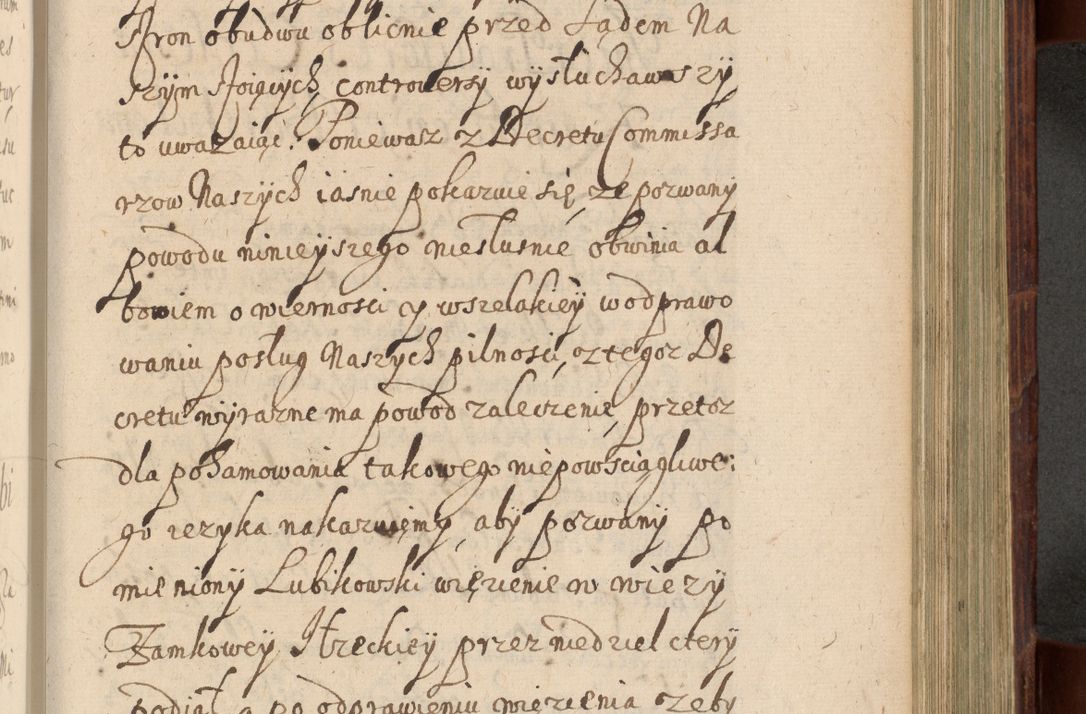 stron obudwu oblicnie przed Sądem Na
szym stoiących controversy wysłuchawszy
to uwazaiąc. Poniewasz z Decretu Commissa
rzow Naszych iasnie pokazuie się, ze pozwany
powodu ninieyszego niesłusnie obwinia al
bowiem o wiernosci y wszelakiey w odprawo
waniu posług Naszych pilnosci, z tegoz De
cretu wyrazne ma powod zaleczenie, przetoz
dla pohamowania takowego niepowsciągliwe:
go iezyka nakazuiemy, aby pozwany po
mieniony Lubikowski więzienie w wiezy
Zamkowey Itzeckiey przez niedziel ctery
podiął a po odprawieniu więzienia zeby